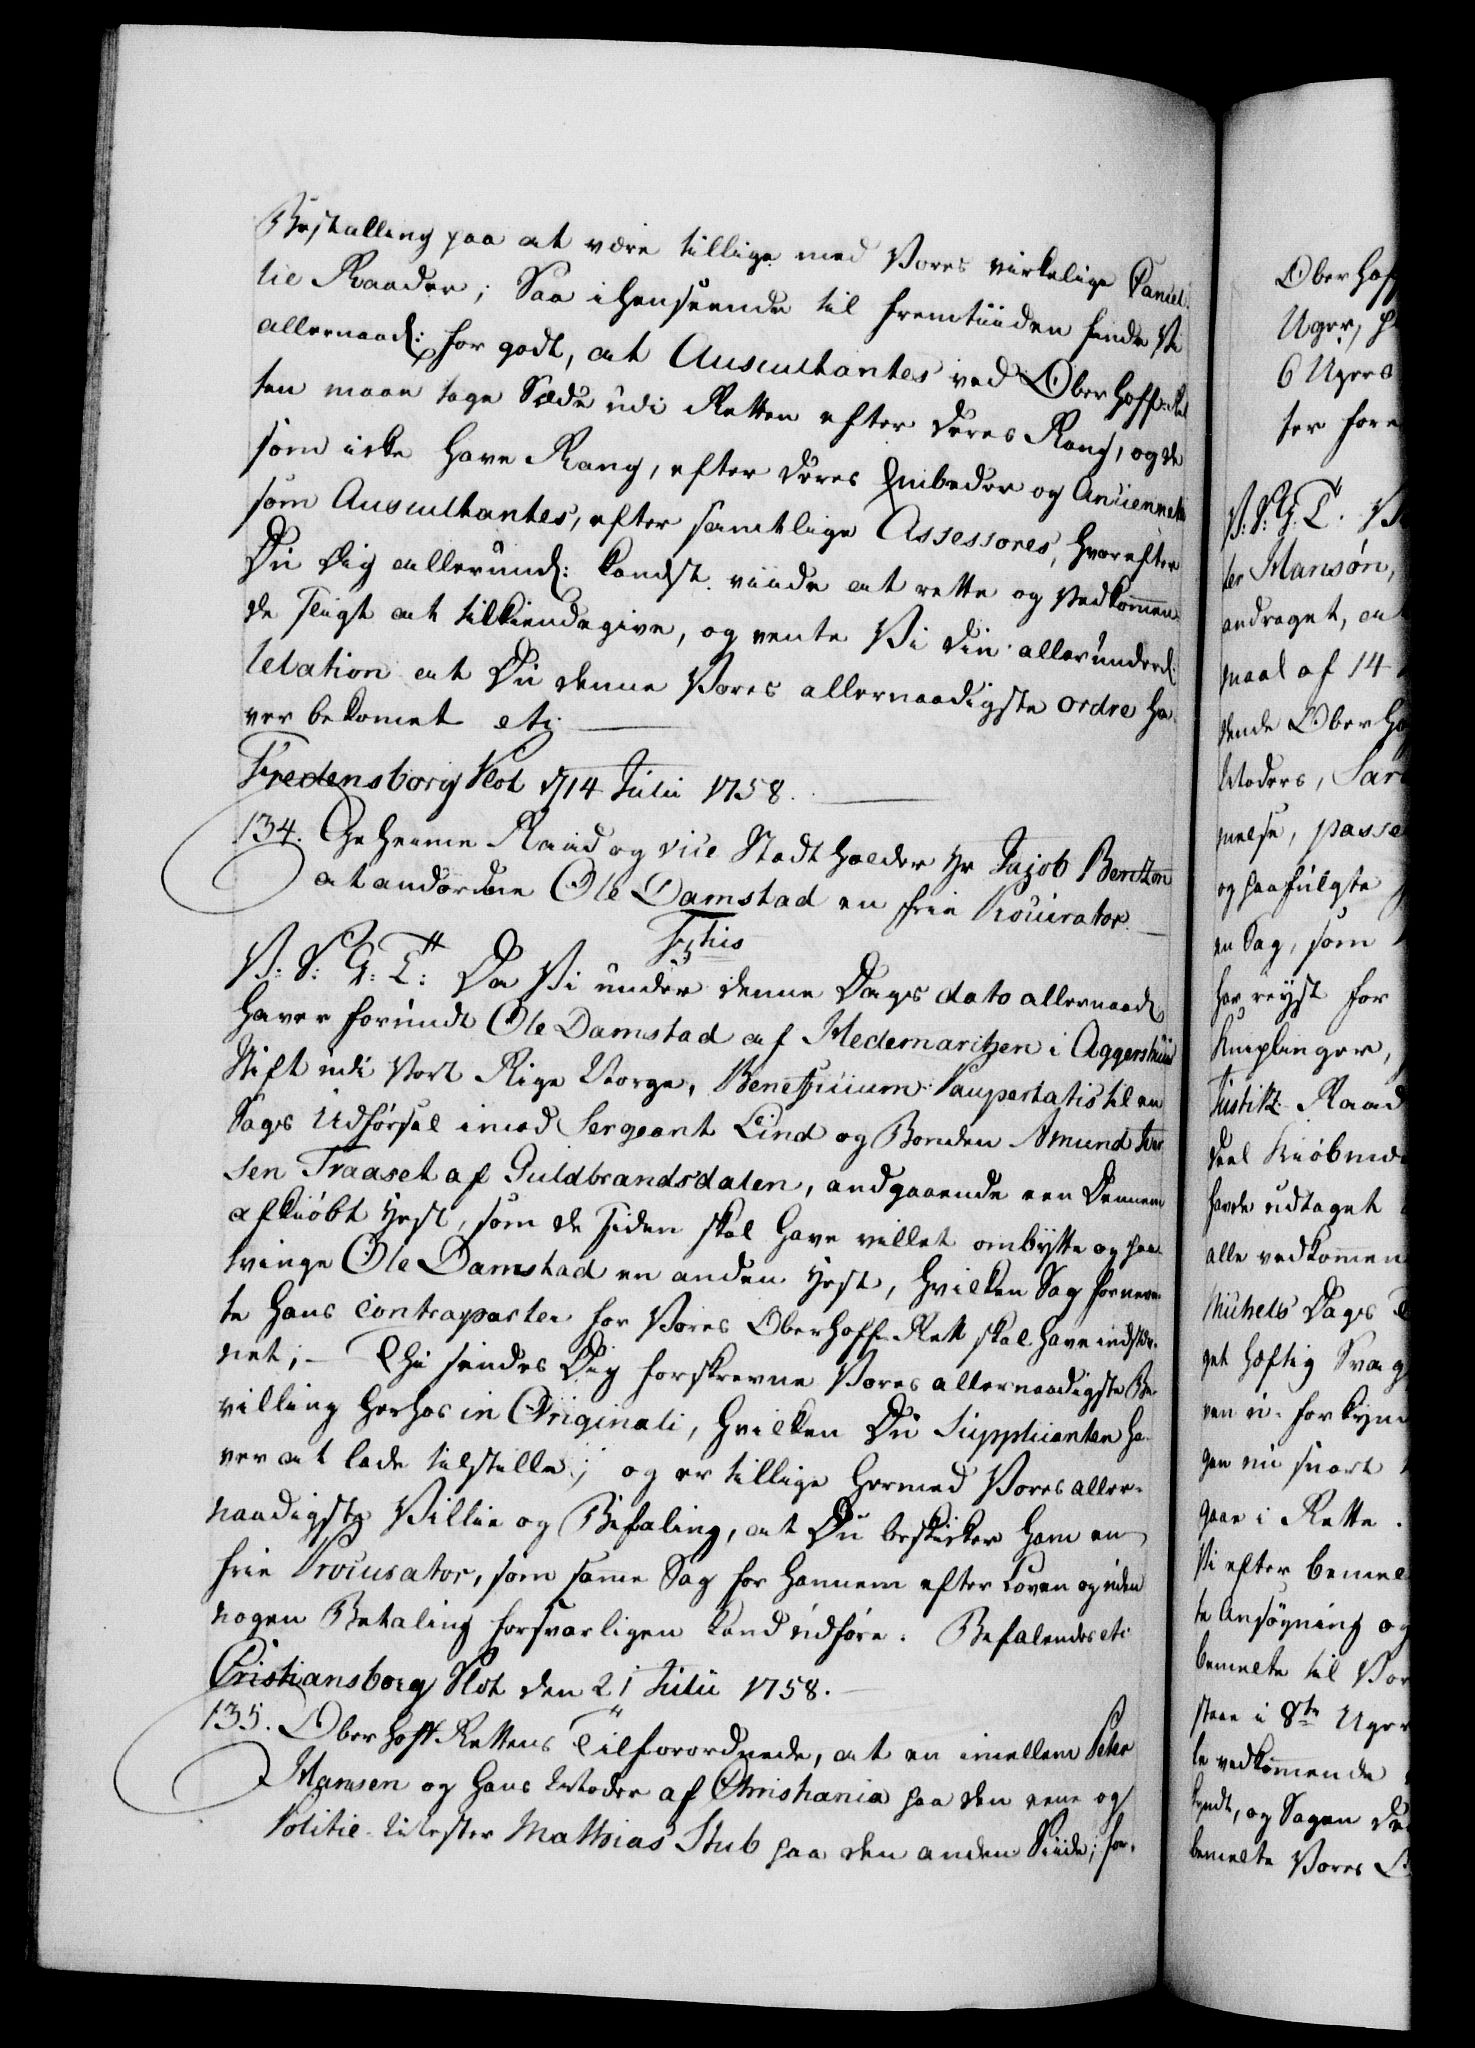 Bestalling paa at være tillige med Vores virkelige Cancel-
lie Raader; Saa i henseende til fremtiiden finde Vi
allernaad: for godt, at Auscultantes ved Oberhoff-Ret
ten maae tage Sæde udi Retten efter deres Rang, og de
som icke have Rang, efter deres Embeder og Anciennete
som Auscultantes, efter samtlige Assessores, hvorefter
Du Dig allerund: kandst viide at rette og Vedkommen
de sligt at tilkiendegive, og vente Vi din allerunderd:
Relation at Du denne Vores allernaadigste ordre ha-
ver bekomet etc.
Fredensborg Slot d 14 Julii 1758.
134. Geheime Raad og vice Stadtholder Hr Jacob Benzon
at anordne Ole Damstad en frie Procurator.
F. 5tus
V: S: G: T: Da Vi under denne Dags dato allernaad:
haver forundt Ole Damstad af Hedemarken i Aggershuus
Stift udi Vort Rige Norge, Beneficium Paupertatis til en
Sags Udførsel imod Sergeant Lind og Bonden Amund Iver
sen Traaset af Guldbrandsdalen, andgaaende een Dennem
afkiøbt Hest, som de siden skal have villet ombytte og paa-
tvinge Ole Damstad en anden Hest, hvilken Sag fornevn-
te hans Contraparter for Vores Oberhoff-Rett skal have indstev-
net; - Thi sendes Dig forskrevne Vores allernaadigste Be-
villing herhos in Originali, hvilken Du Supplicanten ha-
ver at lade tilstille; og er tillige hermed Vores aller-
naadigste Villie og Befaling, at Du beskicker ham en
frie Procurator, som samme Sag for hannem efter Loven og uden
nogen Betaling forsvarligen kand udføre. Befalendes etc.
Cristiansborg Slot den 21 Julii 1758.
135. Oberhoff Rettens Tilforordnede, at en imellem Peter
Hansen og hans Moder af Christiania paa den eene og
Politie-Mester Mathias Stub paa den anden Siide, for-
Oberhoff
Uger,
6 Ugers
ter
V: S: G: T.
ter Hansøn,
andraget, at
maal af 14
dende Oberho
Moders,
melse, passe
og paafulgte
en Sag, som
har reyst for
Kniplinger,
Justitz Raad
deel Kiøbmæ
havde udtaget
alle vedkommen
Michels Dags
get hæftig Svag
ven u-forkyn
gen nu snart
gaae i Rette.
Vi efter bemel
te Ansøgning og
bemelte til Vor
staae i 8te Uger
le vedkommende
kyndt, og Sagen
bemelte Vores